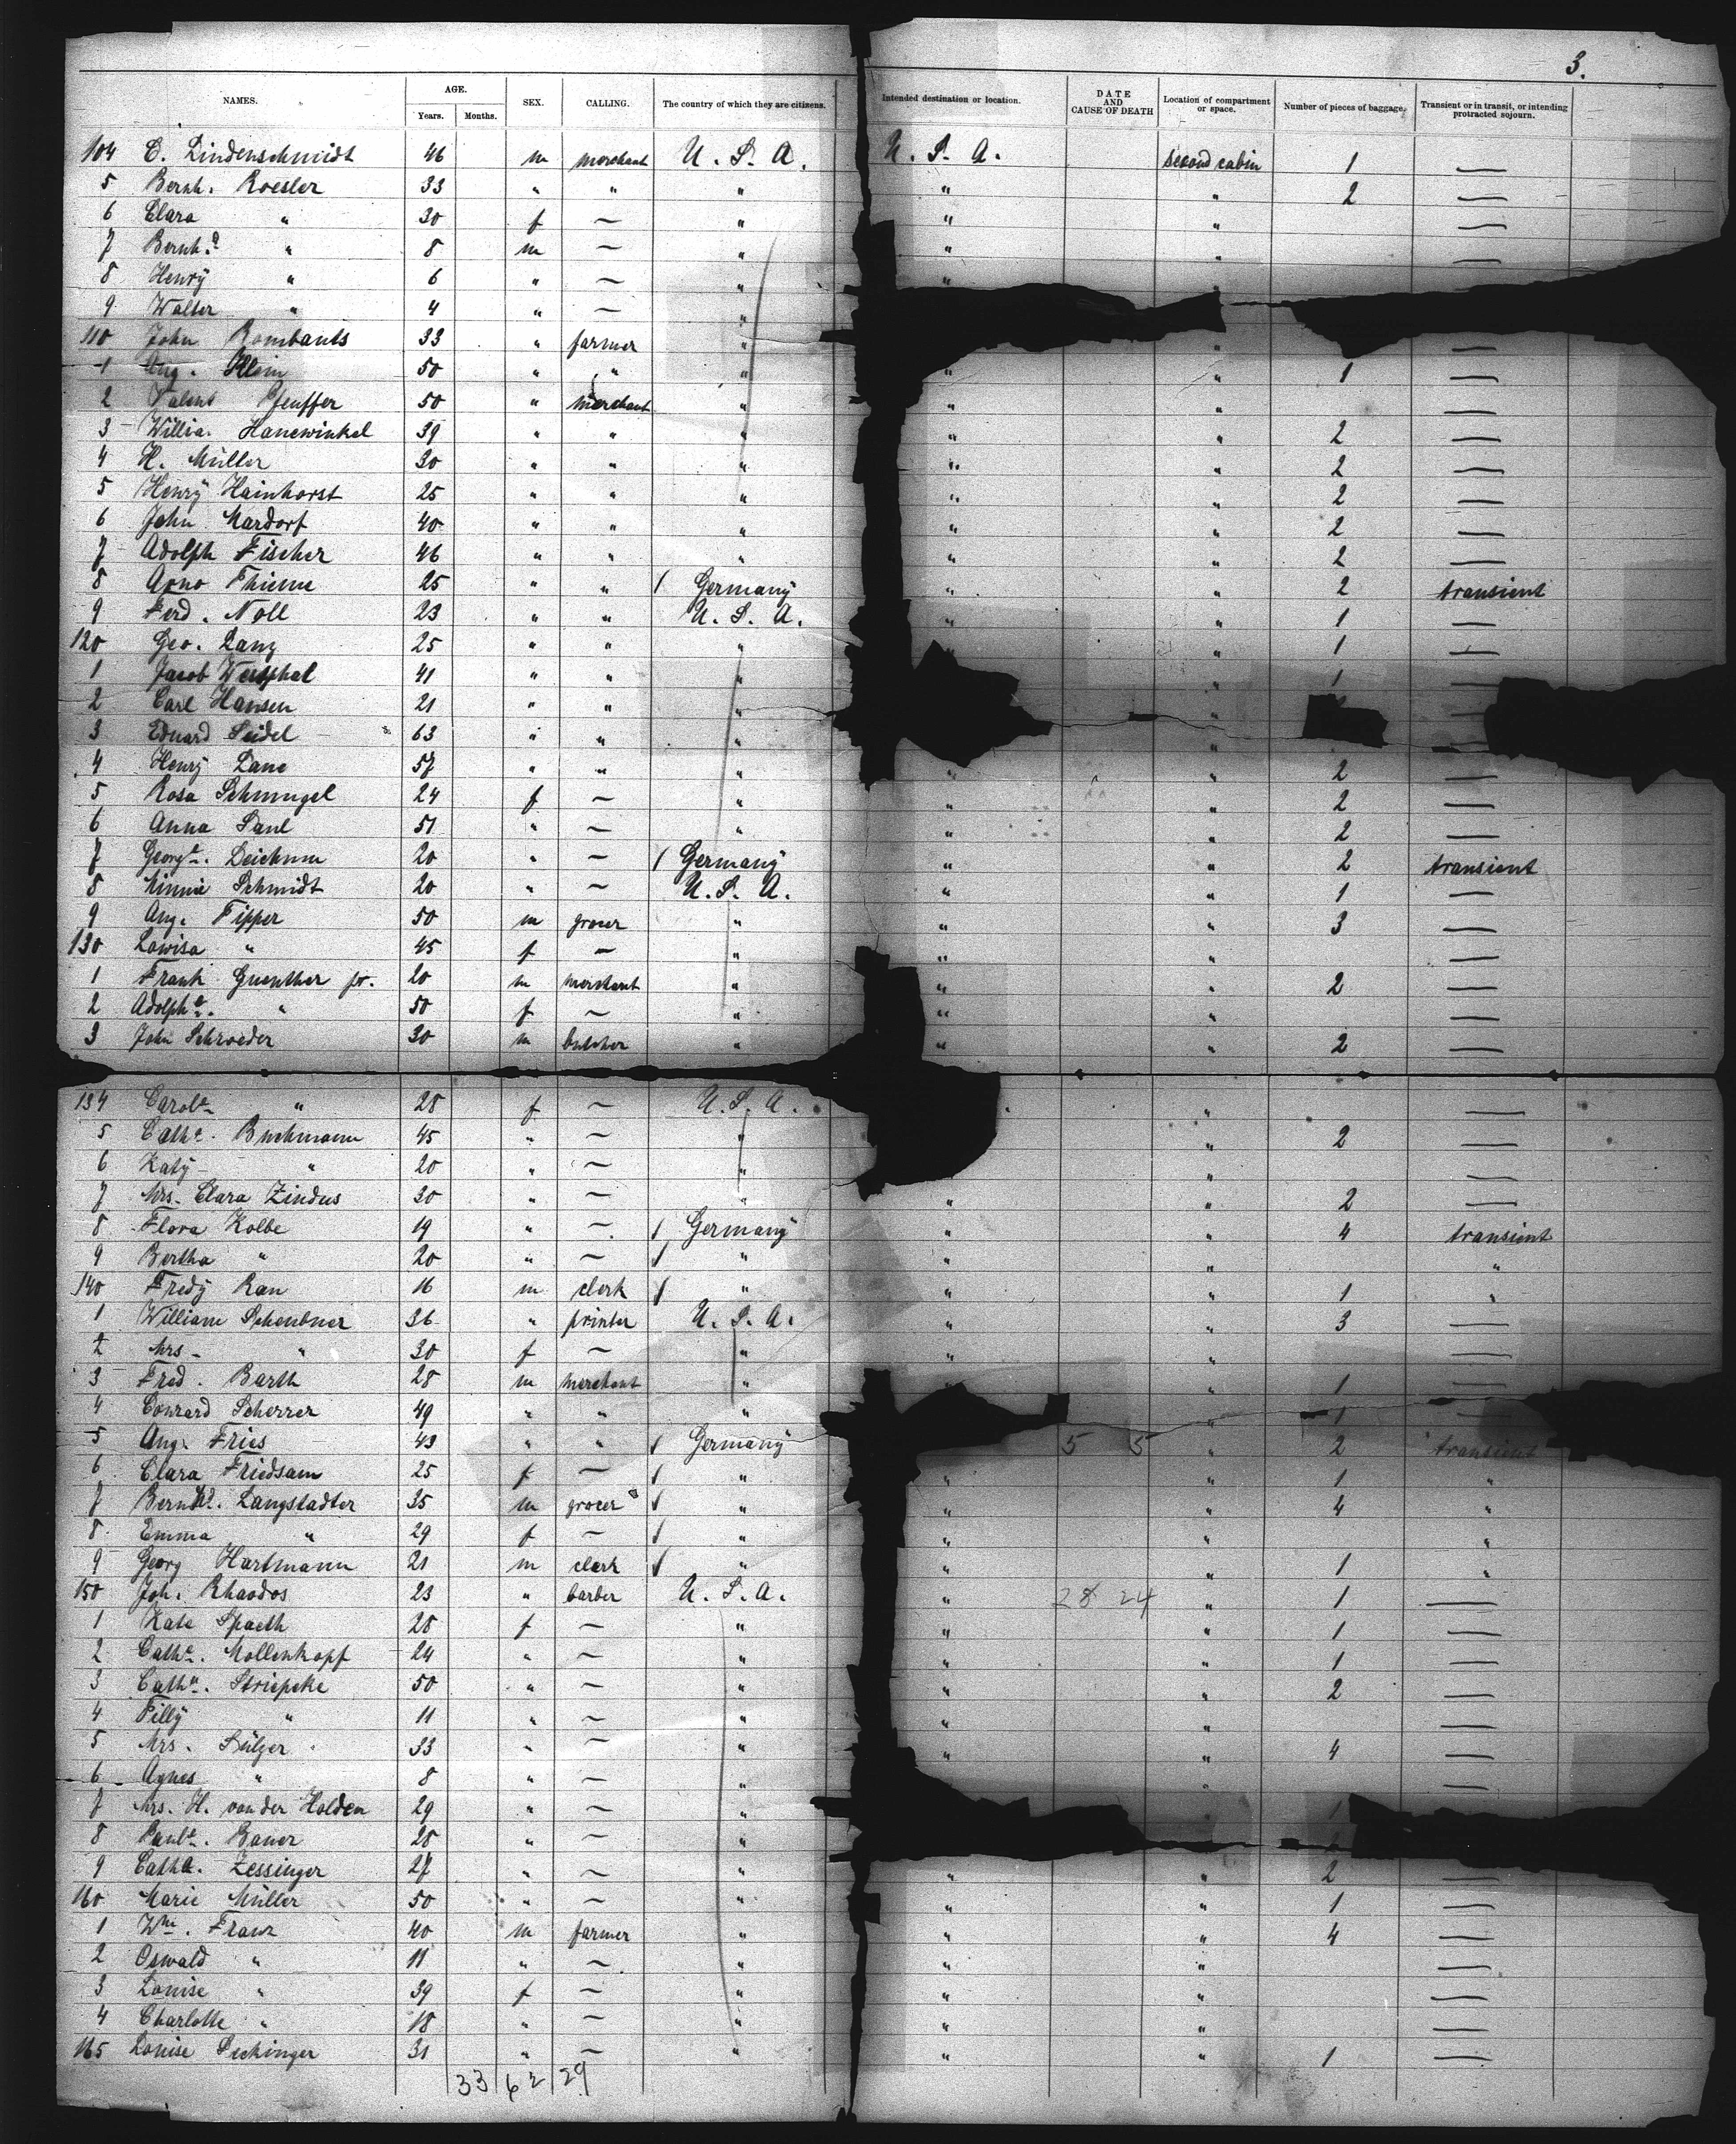 3.
NAMES. AGE. Years. Months. SEX. CALLING. The country of which they are citizens. Intended destination or location. DATE AND CAUSE OF DEATH Location of compartment or space. Number of pieces of baggage. Transient or in transit, or intending protracted sojourn.
104 C. Lindenschmidt 46 m merchant U. S. A. U. S. A. second cabin 1 —
5 Bernh. Roesler 33 " " " " " 2 —
6 Clara " 30 f — " " " —
7 Bernh.d " 8 m — " " " —
8 Henry " 6 " — " "
9 Walter " 4 " — "
110 John Rombauts 33 " farmer " " —
1 Aug. Klein 50 " " " " " 1 —
2 Pfeuffer 50 " merchant " " " —
3 Willia. Hanewinkel 39 " " " " " 2 —
4 H. Müller 30 " " " " " 2 —
5 Henry Hainhorst 25 " " " " " 2 —
6 John Mardorf 40 " " " " " 2 —
7 Adolph Fischer 46 " " " " " 2 —
8 Arno Thieme 25 " " Germany " " 2 transient
9 Ferd. Noll 23 " " U. S. A. " " 1 —
120 Geo. Lang 25 " " " " " 1 —
1 Jacob Westphal 41 " " " " 1
2 Carl Hansen 21 " " " " —
3 Eduard Seidel 63 " " " " —
4 Henry Lane 57 " " " " " 2 —
5 Rosa Schmugel 24 f — " " " 2 —
6 Anna Paul 51 " — " " " 2 —
7 Georgte. Deichum 20 " — Germany " " 2 transient
8 Minnie Schmidt 20 " — U. S. A. " " 1 —
9 Aug. Tipper 50 m grocer " " " 3 —
130 Lowisa " 45 f — " " " —
1 Frank Guenther jr. 20 m merchant " " " 2 —
2 Adolphe. " 50 f — " " " —
3 John Schroeder 30 m butcher " " " 2 —
134 Carole " 28 f — U. S. A. " —
5 Cathe. Buchmann 45 " — " " 2 —
6 Katy " 20 " — " " —
7 Mrs. Clara Zindus 30 " — " " " 2 —
8 Flora Kolbe 19 " — Germany " " 4 transient
9 Bertha " 20 " — " " " "
140 Fredy Rau 16 m clerk " " " 1 "
1 William Scheubner 36 " printer U. S. A. " " 3 —
2 Mrs. " 30 f — " " " —
3 Fred. Barth 28 m merchant " " " 1 —
4 Conrard Scherrer 49 " " " " 1 —
5 Aug. Fries 43 " " Germany 5 5 " 2 transient
6 Clara Friedsam 25 f — " " " 1 "
7 Bernhd. Langstadter 35 m grocer " " " 4 "
8 Emma " 29 f — " " " "
9 Georg Hartmann 21 m clerk " " " 1 "
150 Joh. Rhaodos 23 " barber U. S. A. " 28 24 " 1 —
1 Kate Spaeth 28 f — " " " 1 —
2 Cathe. Mollenkopf 24 " — " " " 1 —
3 Cathe. Striepeke 50 " — " " " 2 —
4 Tilly " 11 " — " " " —
5 Mrs. Sülzer 33 " — " " " 4 —
6 Agnes " 8 " — " " —
7 Mrs. H. von der Holden 29 " — " " 1
8 Paule. Bauer 28 " — "
9 Catha. Zessinger 27 " — " " " 2 —
160 Marie Müller 50 " — " " " 1 —
1 Wm. Franz 40 m farmer " " " 4 —
2 Oswald " 11 " — " " " —
3 Louise " 39 f — " " " —
4 Charlotte " 18 " — " " " —
165 Louise Seckinger 31 " — " " " 1 —
33 62 29